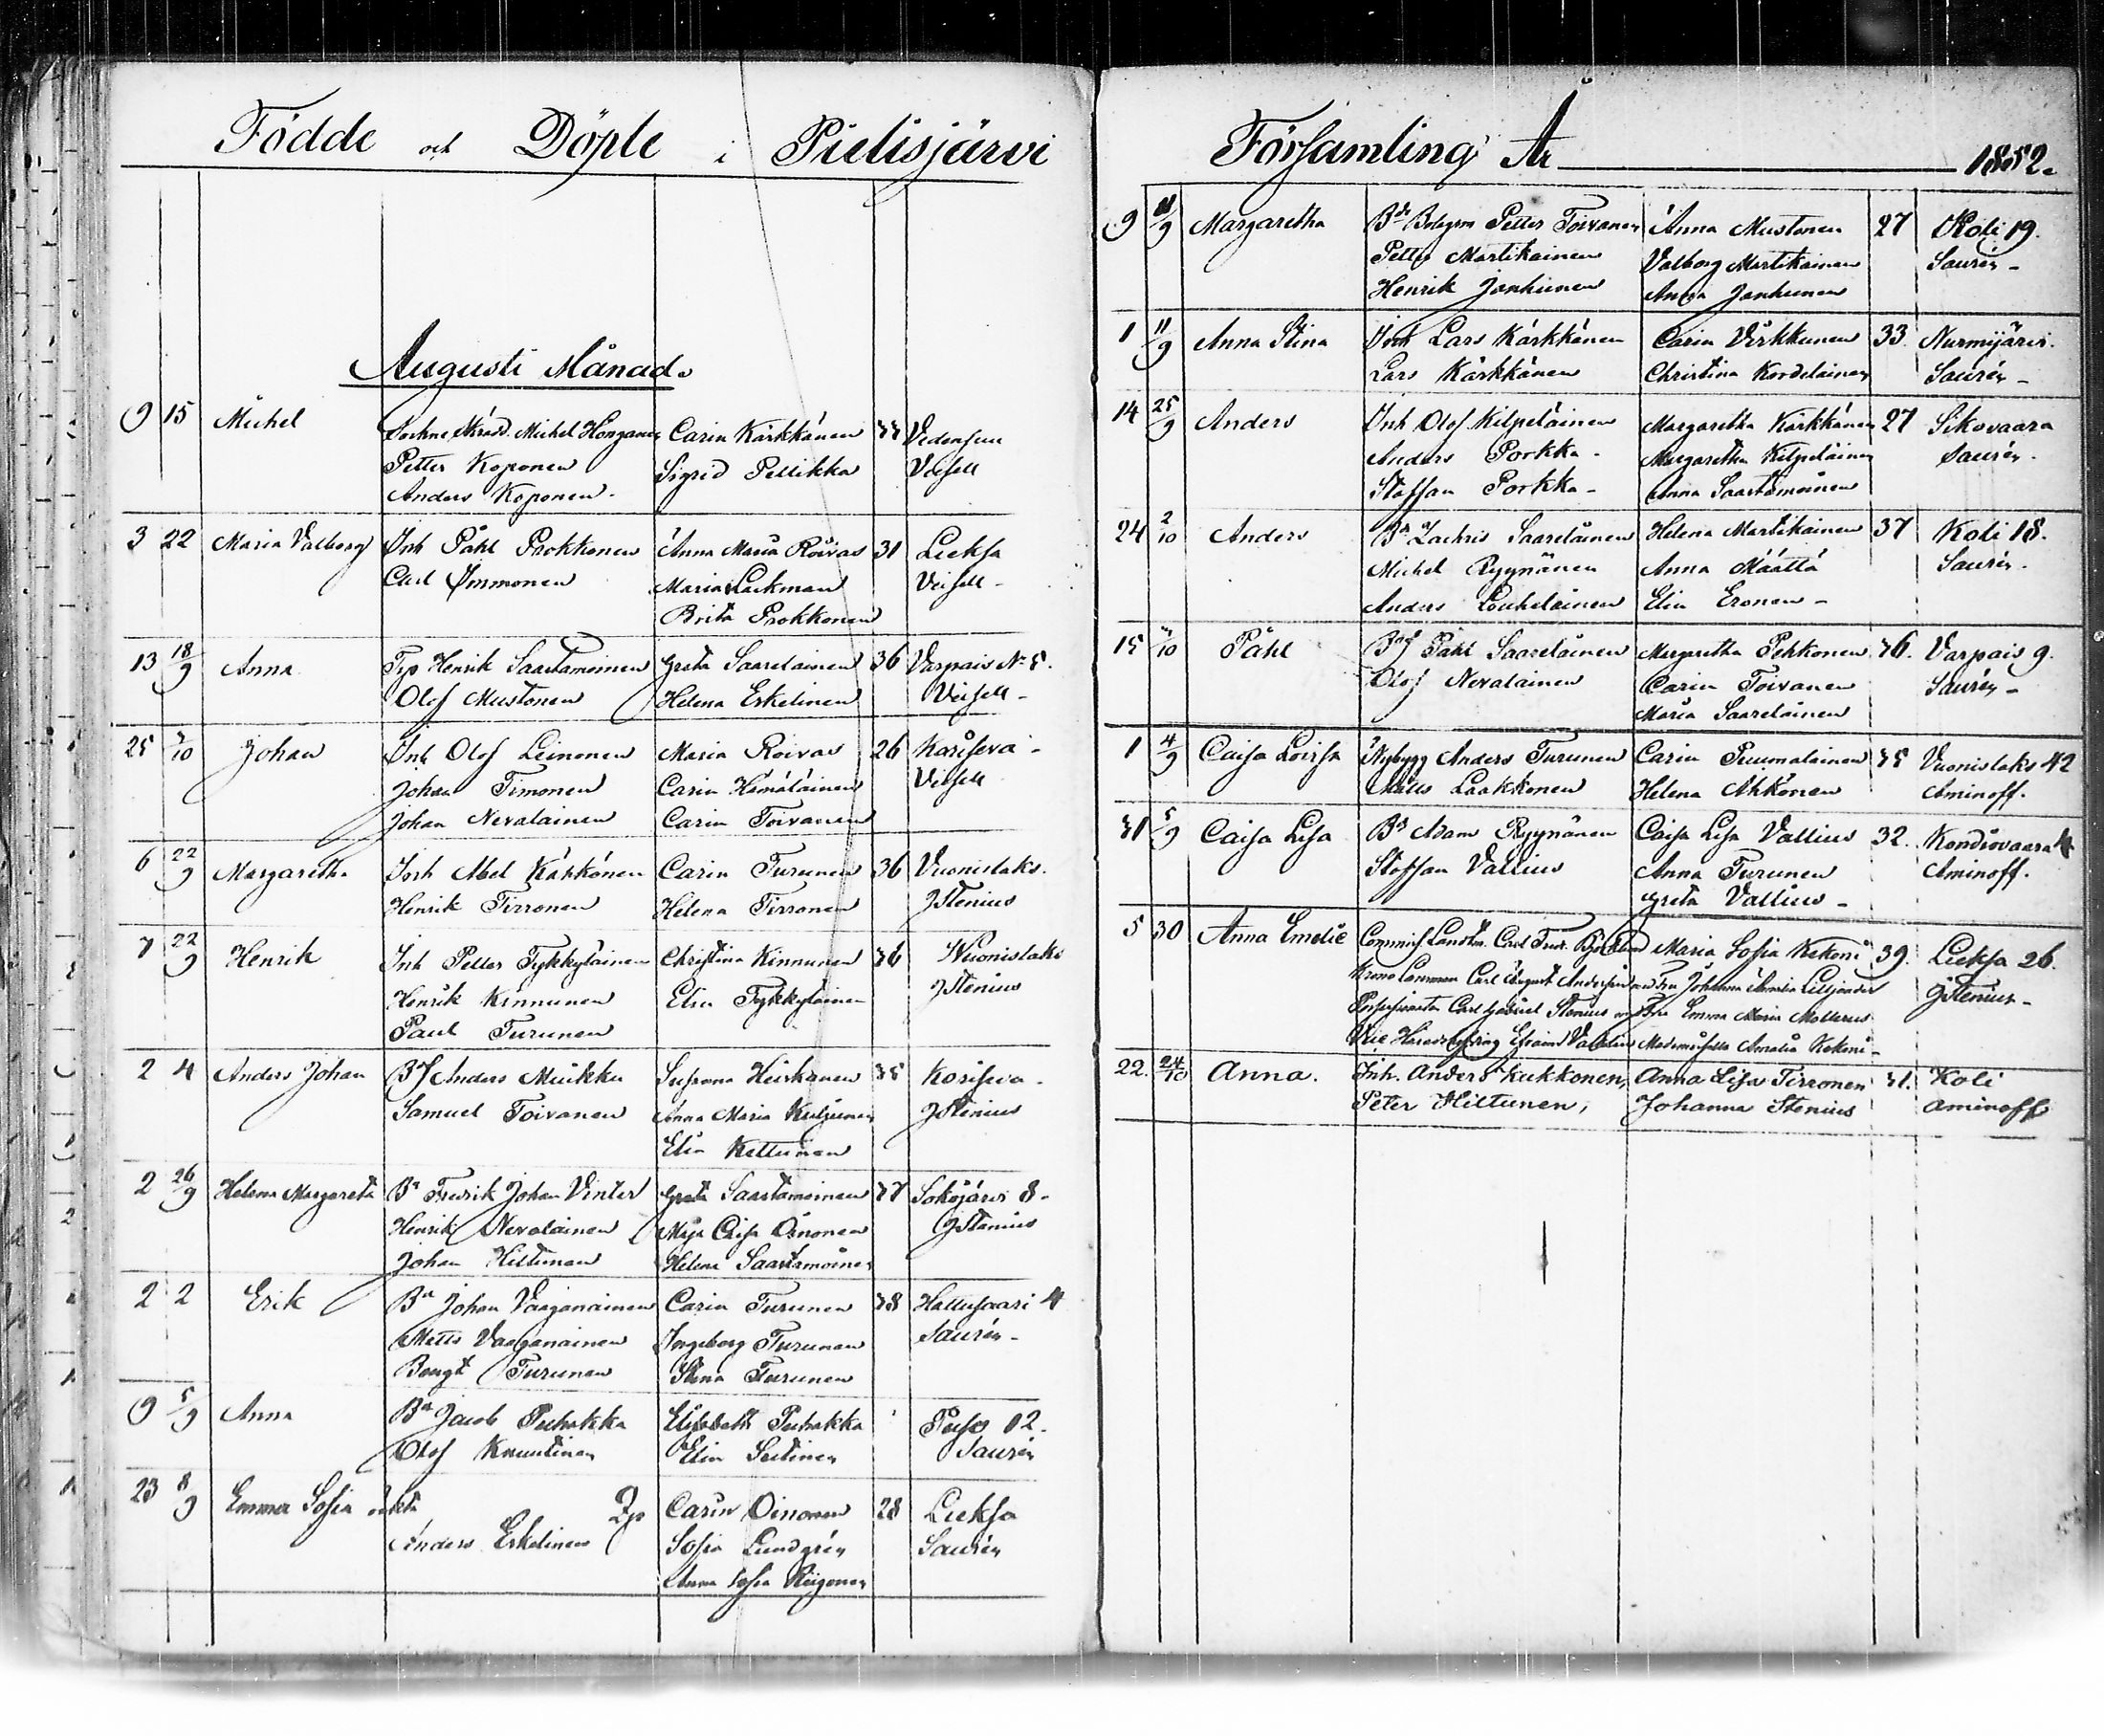 Födde och Döpte i Pielisjärvi
Augusti Månad.
9 15 Michel Michel Honganen Carin Kärkkänen 37
Petter Koponen Sigrid Pellikka
Anders Koponen.
3 22 Maria Valborg Inh Påhl Prokkonen Anna Maria Roivas 31 Lieksa
Carl Immonen Maria Lackman
Brita Prokkonen
13 18/9 Anna Henrik Saastamoinen Greta Saarelainen 36 Varpais No 5.
Olof Mustonen Helena Eskelinen
25 3/10 Johan Inh Olof Leinonen Maria Roivas 26
Johan Timonen Carin Hämäläinen
Johan Nevalainen Carin Toivanen
6 22/9 Margaretha Abel Kähkönen Carin Turunen 36 Vuonislaks.
Henrik Tirronen Helena Tirronen JStenius
7 22/9 Henrik Inh Petter Tykkyläinen Christina Kinnunen 36 Vuonislaks
Henrik Kinnunen Elin Tykkyläinen JStenius
Paul Turunen
2 4 Anders Johan Anders Muikku 35
Samuel Toivanen Anna Maria JStenius
Elin Kettunen
2 26/9 Helena Margareta Bn Fredrik Johan Vinter Greta Saastamoinen 37 Sokojärvi 8-
Henrik Nevalainen Maja Caisa Oinonen JStenius
Johan Hiltunen Helena Saastamoinen
2 2 Erik Bn Johan Vaaganainen Carin Turunen 38 Hattusaari 4
Matts Vaaganainen Ingeborg Turunen Saurén-
Bengt Turunen Stina Turunen
9 5/9 Anna Bn Jacob Puhakka Elisabeth Puhakka Puso 12.
Olof Knuutinen Elin Saurén
23 8/9 Emma Sofia oäkta Carin Oinonen 28 Lieksa
Anders Eskelinen Sofia Lundgrén Saurén
Anna Sofia
Församling År 1852.
9 11/9 Margaretha Petter Toivanen Anna Mustonen 27 Koli 19.
Petter Martikainen Valborg Martikainen Saurén-
Henrik Janhunen Anna Janhunen
1 11/9 Anna Stina Lars Kärkkänen Carin Virkkunen 33. Nurmijärvi.
Lars Kärkkänen Christina Kordelainen Saurén-
14 25/9 Anders Inh Olof Kilpeläinen Margaretha Kärkkänen 27 Sikovaara
Anders Porkka- Margaretha Kilpeläinen Saurén.
Staffan Porkka- Anna Saastamoinen
24 2/10 Anders Bn Zachris Saareläinen Helena Martikainen 37 Koli 18.
Michel Ryynänen Anna Määttä Saurén.
Anders Louhelainen Elin Eronen-
15 /10 Påhl Påhl Saareläinen Margaretha Pehkonen 36. Varpais 9.
Olof Nevalainen Carin Toivanen Saurén-
Maria Saareläinen
1 4/9 Caisa Lovisa Nybygg Anders Turunen Carin Puumalainen 35 Vuonislaks 42
Matts Laakkonen Helena Ahkonen Aminoff.
31 5/9 Caisa Lisa Adam Ryynänen Caisa Lisa Vallius 32. Kondiovaara
Staffan Vallius Anna Turunen Aminoff.
Greta Vallius-
5 30 Anna Emelie Carl Fredr. Björklund Maria Sofia Kekoni 39. Lieksa 26.
Krono Carl August Fru Johanna Amalia Lilljander JStenius-
Carl Gabriel Stenius Fru Emma Maria Mollerus
Vice Häradshöfding Efraim Mademoiselle Amalia Kekoni-
22. 24/10 Anna. Inh. Anders Kukkonen, Anna Lisa Tirronen 31. Koli
Peter Hiltunen, Johanna Stenius Aminoff